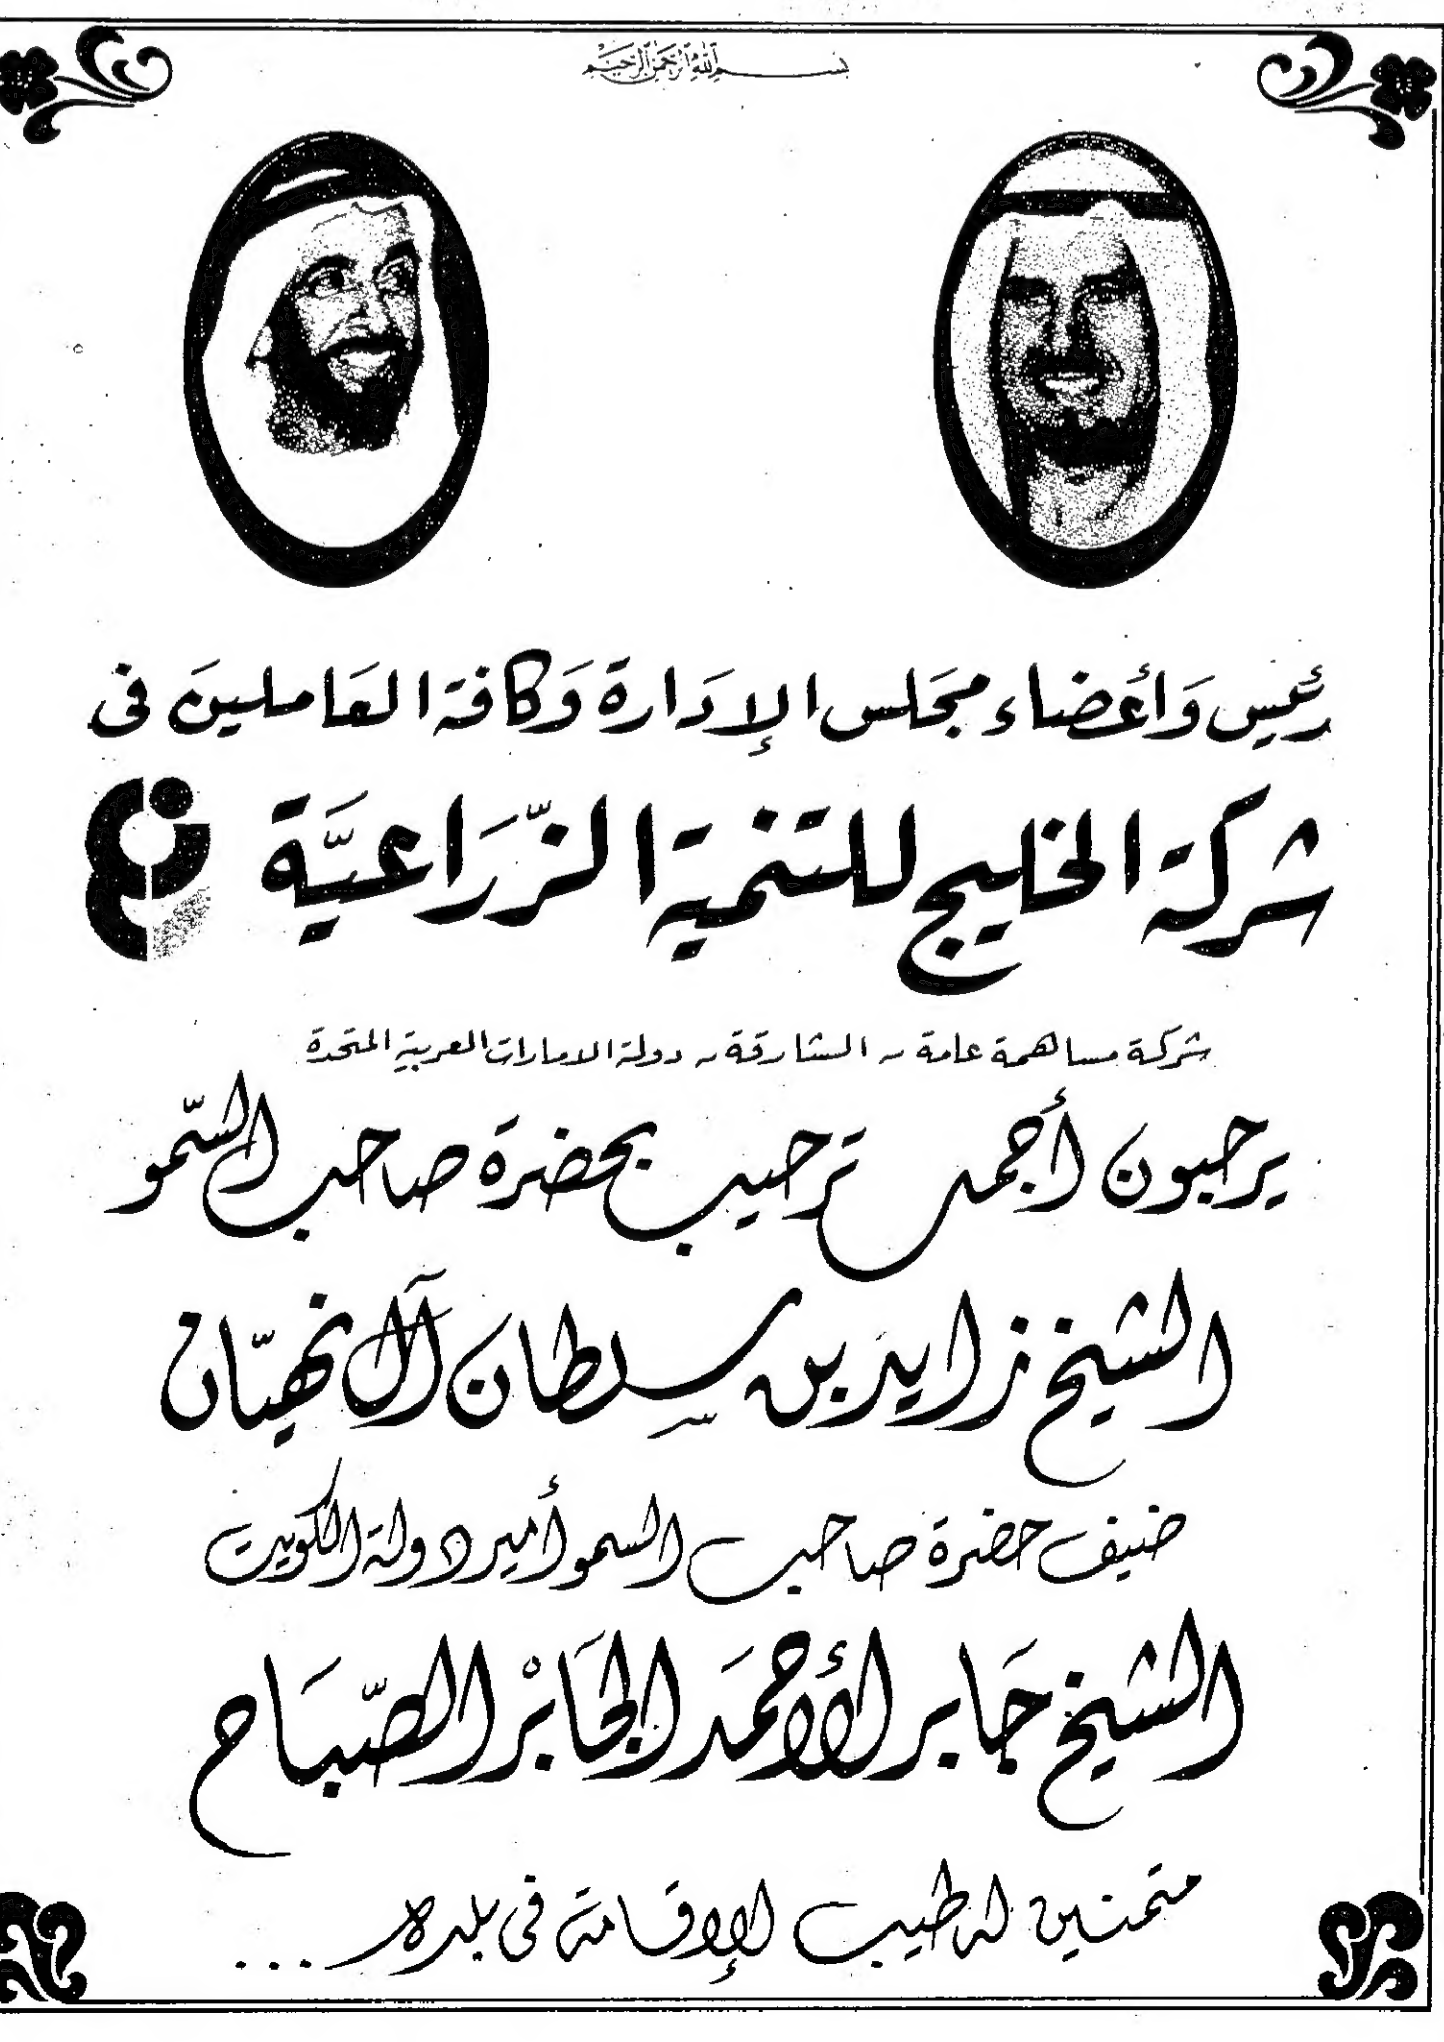 بسم الله الرحمن الرحيم
رئيس وَأعضاء مجَلس الإدَارة وَكافة العَاملينَ فى
شركة الخليج للتنمية الزّرَاعيَّة
شركة مساهمة عامة - الشارقة - دولة الامارات العربية المتحدة
يرحبون أجمل ترحيب بحضرة صاحب السّمو
الشيخ زايد بن سلطان آل نهيّان
ضيف حضرة صاحب السمو أمير دولة الكويت
الشيخ جَابر الأحمَد الجَابْر الصّبَاح
متمنين له طيب الإقامة فى بلده ...